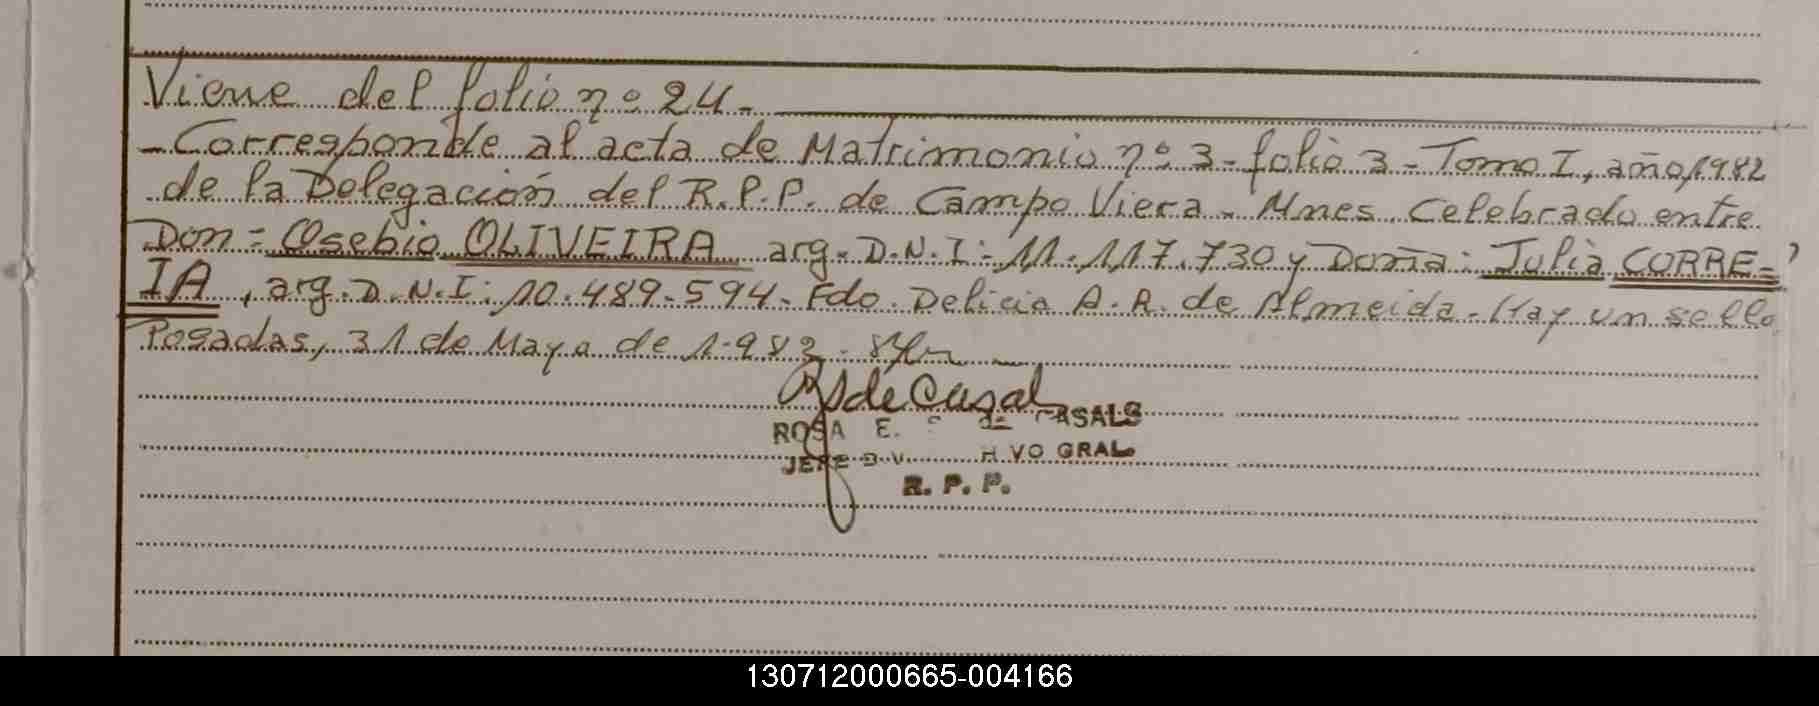 Viene del folio nº 24.
- Corresponde al acta de Matrimonio nº 3 - folio 3 - Tomo I, año 1982
de la Delegación del R.P.P. de Campo Viera - Mnes. Celebrado entre
Don = Osebio OLIVEIRA arg. D.N.I: 11.117.730 y Doña: Julia CORRE=
IA, arg. D.N.I: 10.489.594 - Fdo. Delicia A. R. de Almeida - Hay un sello
Posadas, 31 de Mayo de 1.983 -
de Casal
ROSA E. de CASALS
JEFE VO GRAL.
R. P. P.
130712000665-004166